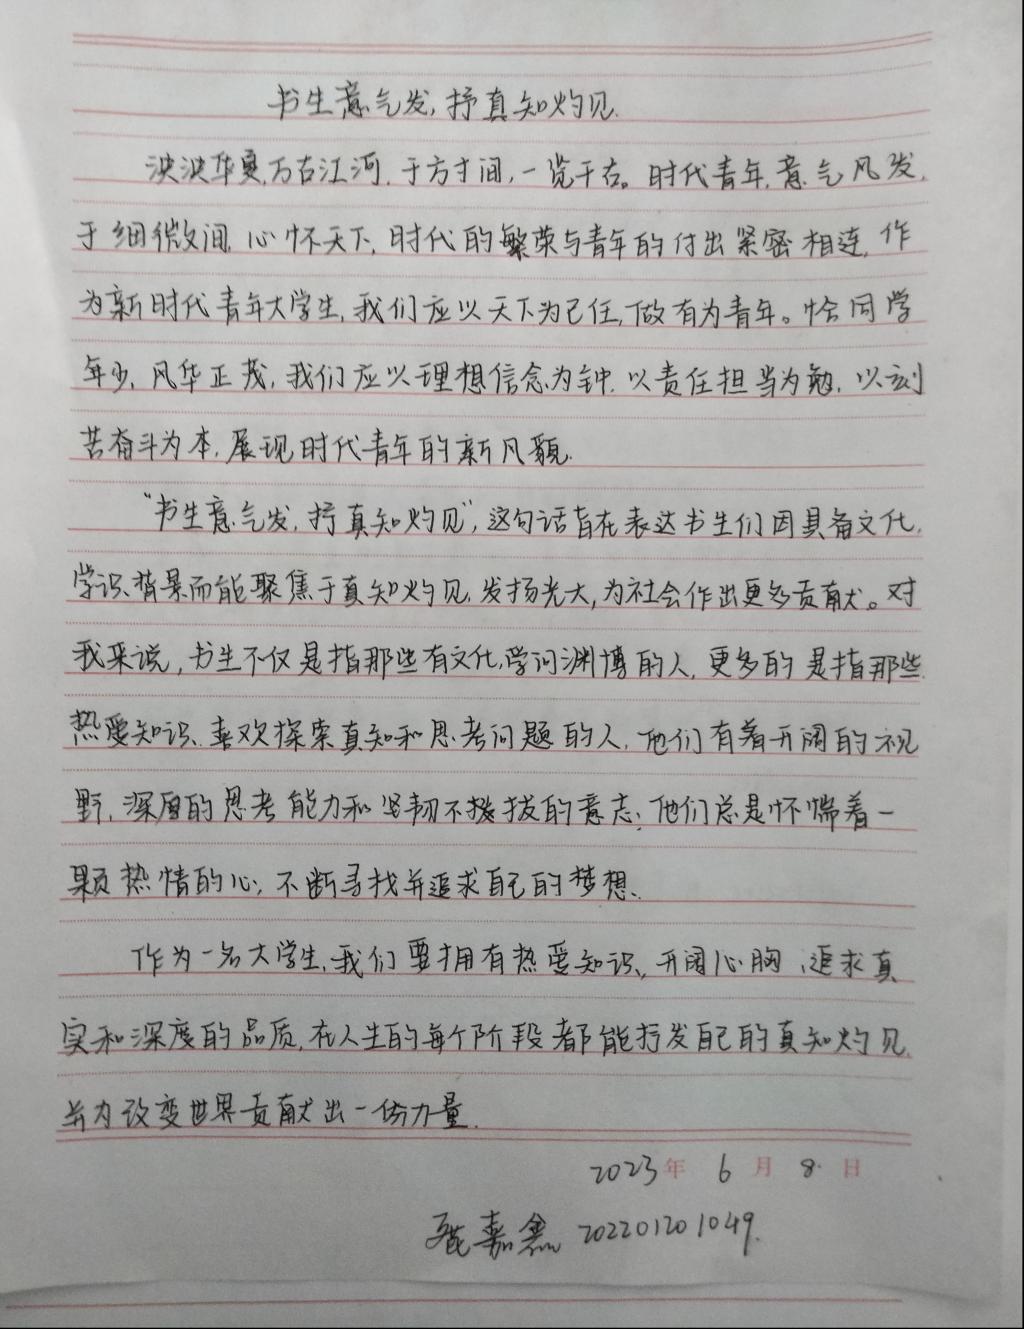 书生意气发,抒真知灼见.
泱泱华夏,万古江河,于方寸间,一览千古。时代青年,意气风发,
于细微间,心怀天下,时代的繁荣与青年的付出紧密相连,作
为新时代青年大学生,我们应以天下为己任,做有为青年。恰同学
年少,风华正茂,我们应以理想信念为钟,以责任担当为勉,以刻
苦奋斗为本,展现时代青年的新风貌.
“书生意气发,抒真知灼见”,这句话旨在表达书生们因具备文化,
学识背景而能聚焦于真知灼见,发扬光大,为社会作出更多贡献。对
我来说,书生不仅是指那些有文化,学问渊博的人,更多的是指那些
热爱知识、喜欢探索真知和思考问题的人,他们有着开阔的视
野,深厚的思考能力和坚韧不拔的意志;他们总是怀惴着一
颗热情的心,不断寻找并追求自己的梦想、
作为一名大学生,我们要拥有热爱知识、开阔心胸、追求真
实和深度的品质,在人生的每个阶段都能抒发自己的真知灼见,
并为改变世界贡献出一份力量.
2023年 6月 8日
嘉鑫 202201201049.